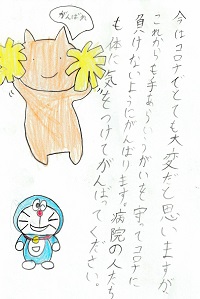 がんばれ
今はコロナでとても大変だと思いますが、
これからも手あらいうがいを守ってコロナに
負けないようにがんばります。病院の人たち
も体に気をつけてがんばってください。